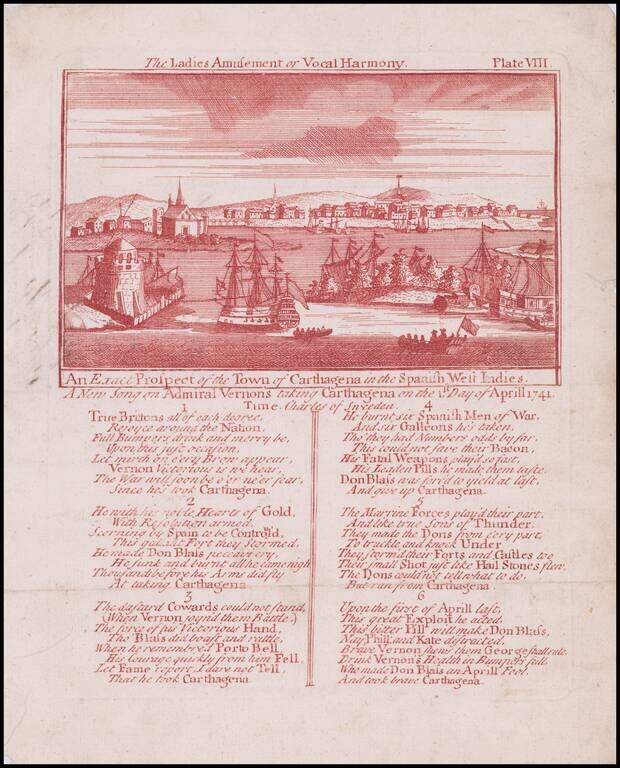 The Ladies Amusement or Vocal Harmony.
Plate VIII.
An Exact Prospect of the Town of Carthagena in the Spanish West Indies.
A New Song on Admiral Vernons taking Carthagena on the 1st. Day of Aprill 1741.
Time. Charles of Sweeden.
1
True Britons all of each degree.
Rejoyce around the Nation.
Full Bumpers drink and merry be,
Upon this just occasion.
Let mirth in every Brow appear,
Vernon Victorious is we hear,
The War will soon be o'er ne'er fear,
Since he's took Carthagena.
2
He with his noble Hearts of Gold,
With Resolution armed,
Scorning by Spain to be Control'd,
This gallant Fort they Stormed.
He made Don Blass peccavi cry.
He sunk and burnt all he came nigh
Thousands before his Arms did fly
At taking Carthagena
3
The dastard Cowards could not stand,
(When Vernon joyn'd them Battle.)
The force of his Victorious Hand,
Tho' Blass did boast and rattle,
When he remembred Porto Bell,
His Courage quickly from him Fell,
Let Fame report I dare not Tell,
That he took Carthagena.
4
He burnt six Spanish Men of War,
And six Galleons he's taken.
Tho they had Numbers odds by far,
This could not save their Bacon,
His Fatal Weapons play'd so fast,
His Leaden Pills he made them taste
Don Blass was forc'd to yield at last,
And give up Carthagena.
5
The Marrine Forces play'd their part.
And like true Sons of Thunder.
They made the Dons from every part,
To truckle and knock Under
They storm'd their Forts and Castles too
Their small Shot just like Hail Stones flew,
The Dons could not tell what to do.
But ran from Carthagena.
6
Upon the first of Aprill last,
This great Exploit he acted.
This bitter Pill will make Don Blass,
Nay Phill and Kate distracted,
Brave Vernon shews them George shall rule.
Drink Vernon's Health in Bumpers full.
Who made Don Blass an Aprill Fool.
And took brave Carthagena.